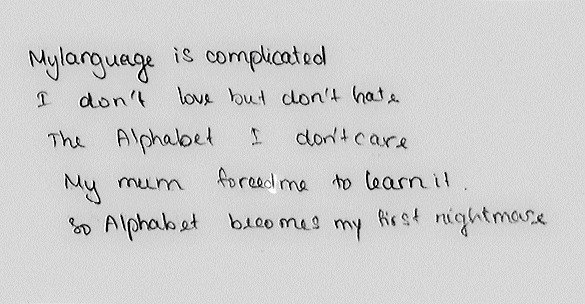 My language is complicated
I don't love but don't hate
The Alphabet I don't care
My mum forced me to learn it.
So Alphabet becomes my first nightmare